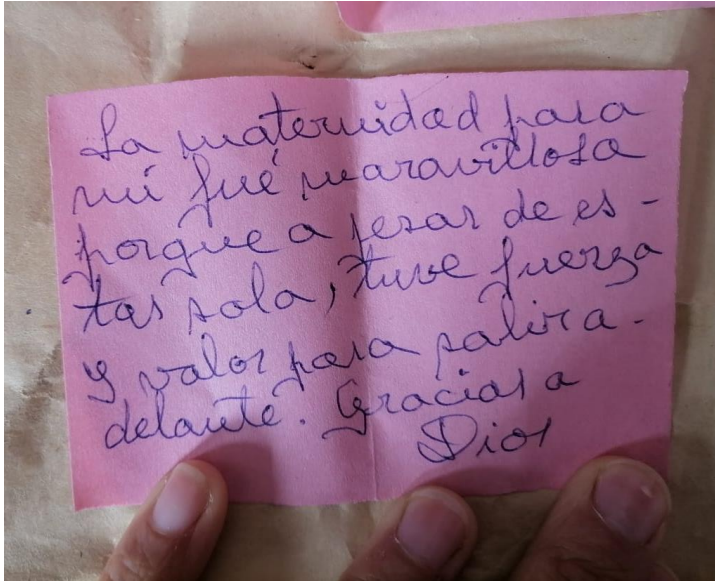 La maternidad para
mi fué maravillosa
porque a pesar de es-
tar sola, tuve fuerza
y valor para salir a-
delante. Gracias a
Dios